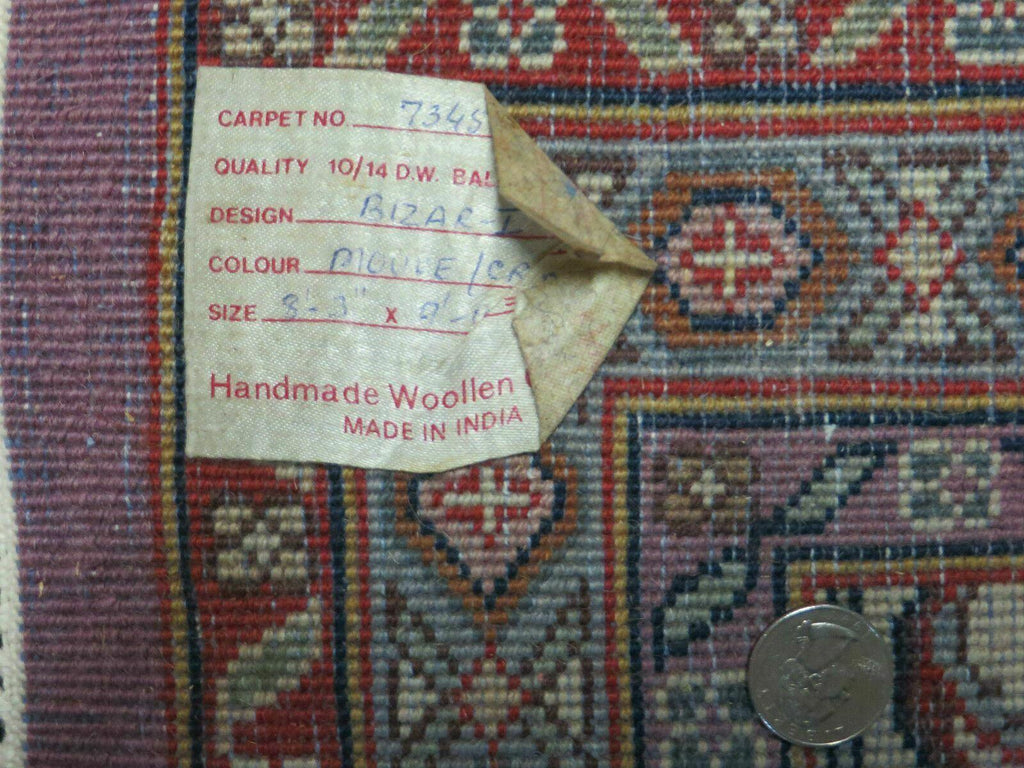 CARPET NO 7345
QUALITY 10/14 D.W. BAL
DESIGN BIZAR-I
COLOUR MOUVE/CR
SIZE 3'-3" X
Handmade Woollen
MADE IN INDIA